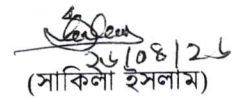 ২৬/০৪/২৬
(সাকিলা ইসলাম)